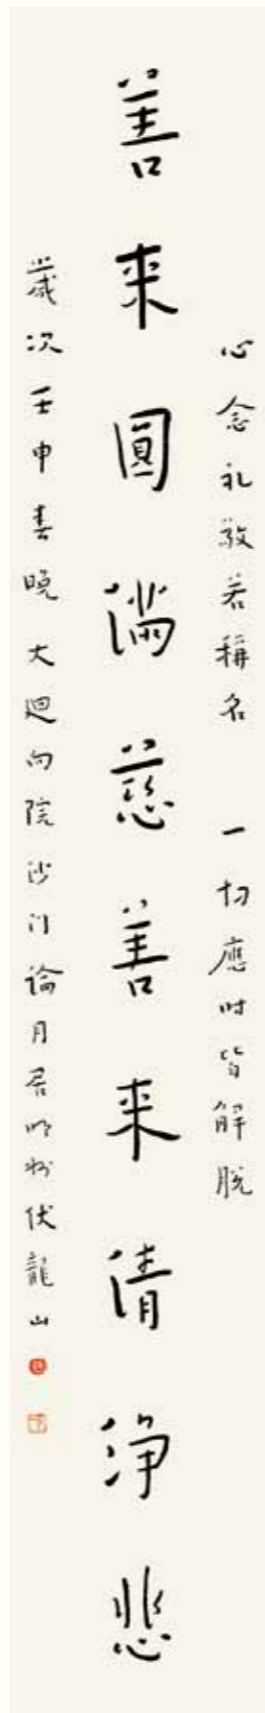 心念礼敬若稱名 一切應时皆解脫
善来圓滿慈善来清淨悲
歲次壬申春晚大迴向院沙门論月居明州伏龍山